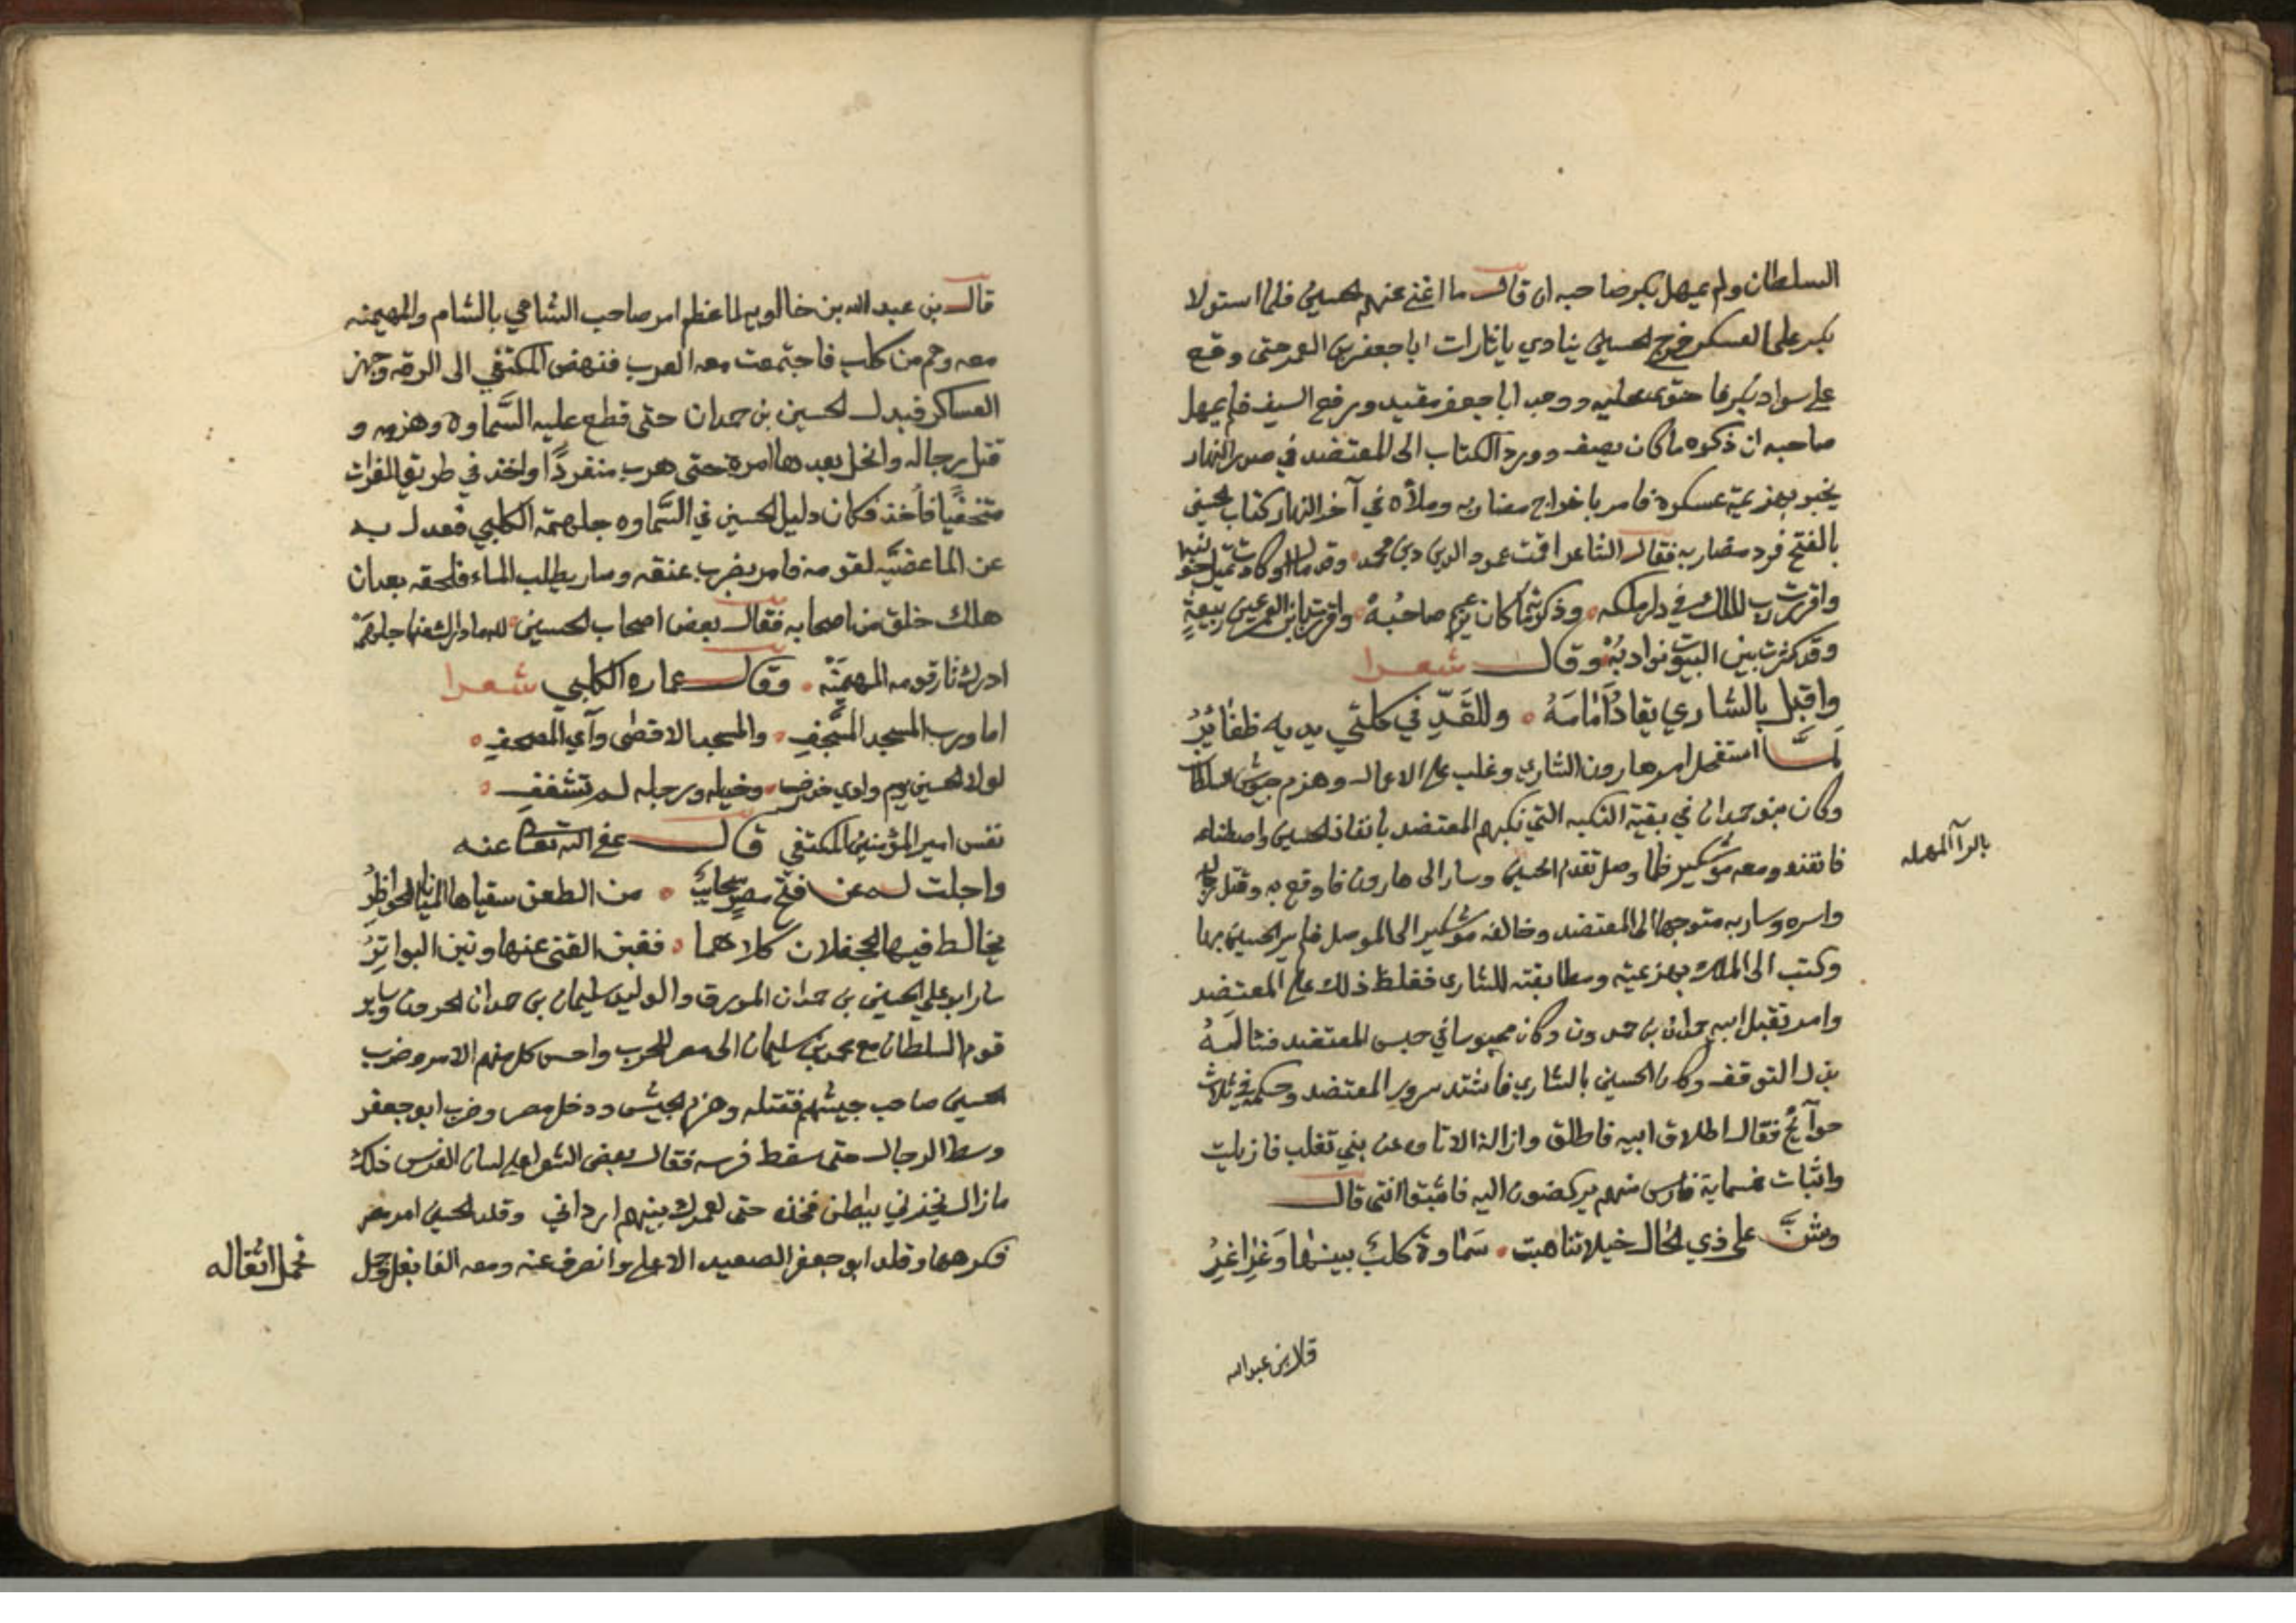 السلطان ولم يمهل بكر صاحبه ان قال ما اغنى عنهم الحسين فلما استولا
بكر على العسكر خرج الحسين ينادي يا ثارات ابا جعفر بن العمر حتى وقع
على سواد بكر فاحتوى عليه ووجد ابا جعفر مقيد ورفع السيف فلم يمهل
صاحبه ان ذكره ما كان يصف وورد الكتاب الى المعتضد في صدر النهار
يخبر بهزيمة عسكره فامر باخراج مضاربه وملأه في آخر النهار كتاب الحسين
بالفتح فرد مضاربه فقال الشاعر اقمت عمود الدين دين محمد وقد مال او كادت تميل
واقررت رب الملك في دار ملكه وذكرتما كان صاحبه واقررت ربيعة
وقد كثرت بين البيوت نوادبه وقال شعرا
واقبل بالشاري يقاد أمامه وللقد في كلتي يديه ظفائر
لما استفحل امر هارون الشاري وغلب على الاعمال وهزم جيوش السلطان
وكان بنو حمدان في بقية النكبه التي نكبهم المعتضد بانفاذ الحسين واصطفاه
فانفذه ومعه موشكير فلما وصل تقدم الحسين وسار الى هارون فاوقع به وقتل
واسره وسار به متوجها الى المعتضد وخالفه موشكير الى الموصل فلم ير الحسين بها
وكتب الى الملك بهزيمته ومطابقته للشاري فغلظ ذلك على المعتضد
وامر بقتل ابيه حمدان بن حمدون وكان محبوسا في حبس المعتضد فشاله
بدر التوقف وكان الحسين بالشاري فاشتد سرور المعتضد وحكمه في ثلاث
حوائج فقال اطلاق ابيه فاطلق وازالة الاتاوه عن بني تغلب فازيلت
واثبات خمسماية فارس منهم يركضون اليه فاثبتوا انتى قال
وشن على ذي الخال خيلا تناهبت سماوة كلب بينها وعراعر
بالرآ المهمله
قال بن عبد الله
قال بن عبد الله بن خالويه لما عظم امر صاحب الشامي بالشام والمهيمنه
معه وهم من كلب فاجتمعت معه العرب فنهض المكتفي الى الرقه وجهز
العساكر فبدل الحسين بن حمدان حتى قطع عليه السماوه وهزمه و
قتل رجاله وانحل بعدها امره حتى هرب منفردا واخذ في طريق الفرات
متخفيا فأخذ فكان دليل الحسين في السماوه جلهمة الكلبي فعدل به
عن الما عضيه لقومه فامر بضرب عنقه وسار يطلب الماء فلحقه بعد ان
هلك خلق من اصحابه فقال بعض اصحاب الحسين لله ما ادرك منا جلهمه
ادرك ثار قومه المهيمنه وقال عماره الكلبي شعرا
اما ورب المسجد المسجف والمسجد الاقصى وآي المصحف
لولا الحسين يوم وادي وخيله ورجله لم تشتف
نفس امير المؤمنين المكتفي قال عفى الله تعالى عنه
واجلت له عن فتح مصر سحائب من الطعن سقياها المنايا الحواظر
يخالط فيها الجحفلان كلاهما فغبن القنى عنها وتبن البواتر
سار ابو علي الحسين بن حمدان المورق والوليد سليمان بن حمدان الحرون وساير
قوم السلطان مع محمد بن سليمان الى مصر للحرب واحسن كل منهم الامر وضرب
الحسين صاحب جيشهم فقتله وهزم الجيش ودخل مصر وضرب ابو جعفر
وسط الرجال حتى سقط فرسه فقال بعض الشعرا على لسان الفرس ذلك
ما زال ينخزني ببطن فخذه حتى لعمرك بينهم ارداني وقلد الحسين امر مصر
فكرهها وقلد ابو جعفر الصعيد الاعلى وانصرف عنه ومعه الفا بغل وجمل
تحمل اثقاله